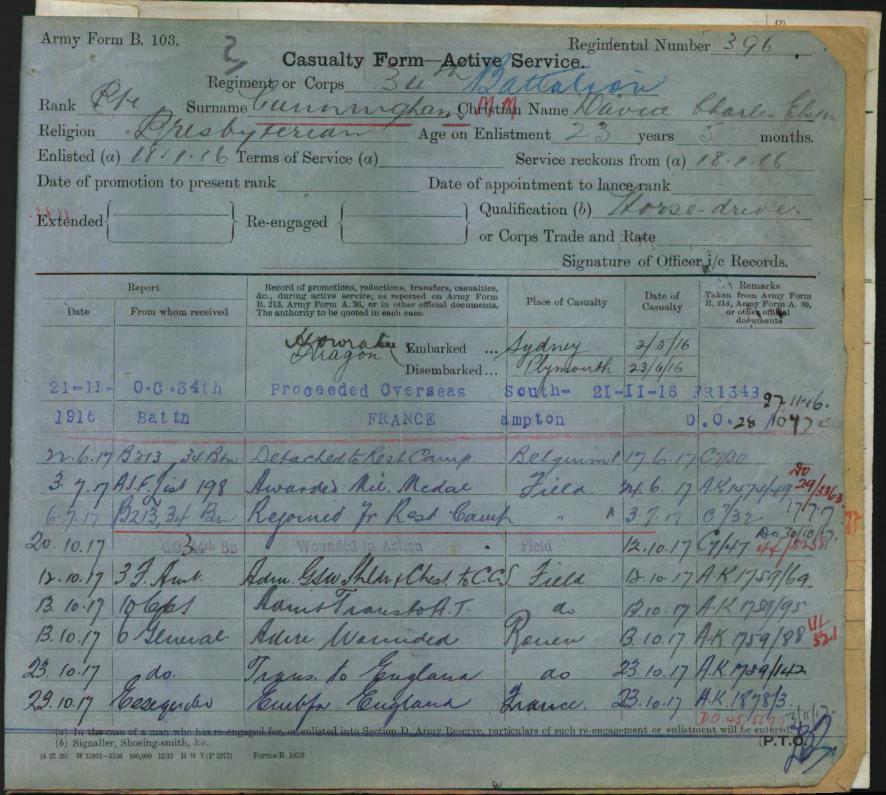 (2)
Army Form B. 103.
Regimental Number 396
Casualty Form—Active Service.
Regiment or Corps 34th Battalion
Rank Pte Surname Cunningham M M Christian Name David Charles
Religion Presbyterian Age on Enlistment 23 years 5 months.
Enlisted (a) 18.1.16 Terms of Service (a) Service reckons from (a) 18.1.16
Date of promotion to present rank Date of appointment to lance rank
Extended Re-engaged Qualification (b) Horse-driver
or Corps Trade and Rate
Signature of Officer i/c Records.
Report
Date From whom received
Record of promotions, reductions, transfers, casualties, &c., during active service, as reported on Army Form B. 213, Army Form A. 36, or in other official documents. The authority to be quoted in each case.
Place of Casualty
Date of Casualty
Remarks Taken from Army Form B. 213, Army Form A. 36, or other official documents
Embarked ... Sydney 2/5/16
Aragon Disembarked ... Plymouth 23/6/16
21-11- O.C.34th Proceeded Overseas South- 21-11-16 FR1343
1916 Battn FRANCE ampton D.O.28
22.6.17 B213 34 Btn Detached to Rest Camp Belguim 17.6.17 C7/30
3.7.17 A.I.F. List 198 Awarded Mil. Medal Field 24.6.17
6.7.17 B213, 34 Bn Rejoined fr Rest Camp " " 3.7.17 C7/32
20.10.17 Wounded in Action Field 12.10.17 C7/47
12.10.17 3 F. Amb. Adm. GSW Shldr & Chest to C.C.S Field 12.10.17 A.K 1759/69
13.10.17 Trans to A.T. do A.K 1759/95
13.10.17 6 General Adm Wounded Rouen 13.10.17 A.K 1759/88
23.10.17 do. Trans. to England do 23.10.17 A.K. 1759/142
23.10.17 Essequibo Emb fr England France. 23.10.17 A.K. 1878/3
(a) In the case of a man who has re-engaged for, or enlisted into Section D, Army Reserve, particulars of such re-engagement or enlistment will be entered.
(b) Signaller, Shoeing-smith, &c. [P.T.O.